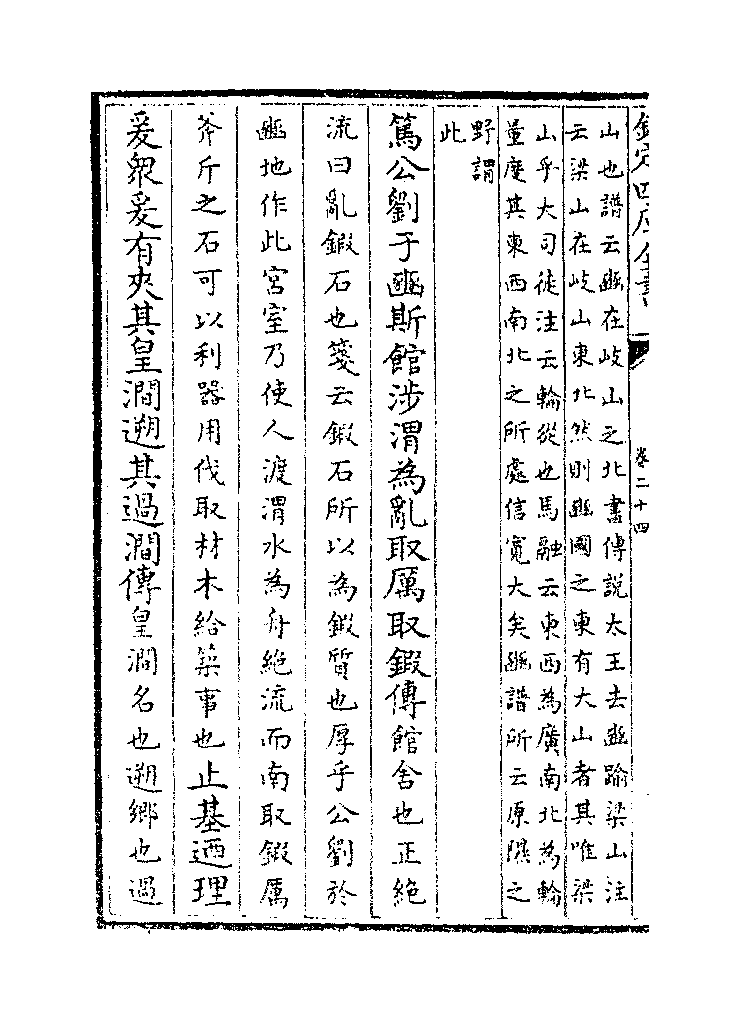 欽定四庫全書
卷二十四
山也譜云豳在岐山之北書傳說太王去豳踰梁山注
云梁山在岐山東北然則豳國之東有大山者其唯梁
山乎大司徒注云輪從也馬融云東西為廣南北為輪
量度其東西南北之所處信寛大矣豳譜所云原隰之
野謂
此
篤公劉于豳斯館涉渭為亂取厲取鍛傳館舍也正絶
流曰亂鍛石也箋云鍛石所以為鍛質也厚乎公劉於
豳地作此宮室乃使人渡渭水為舟絶流而南取鍛厲
斧斤之石可以利器用伐取材木給築事也止基迺理
爰衆爰有夾其皇澗遡其過澗傳皇澗名也遡鄉也過